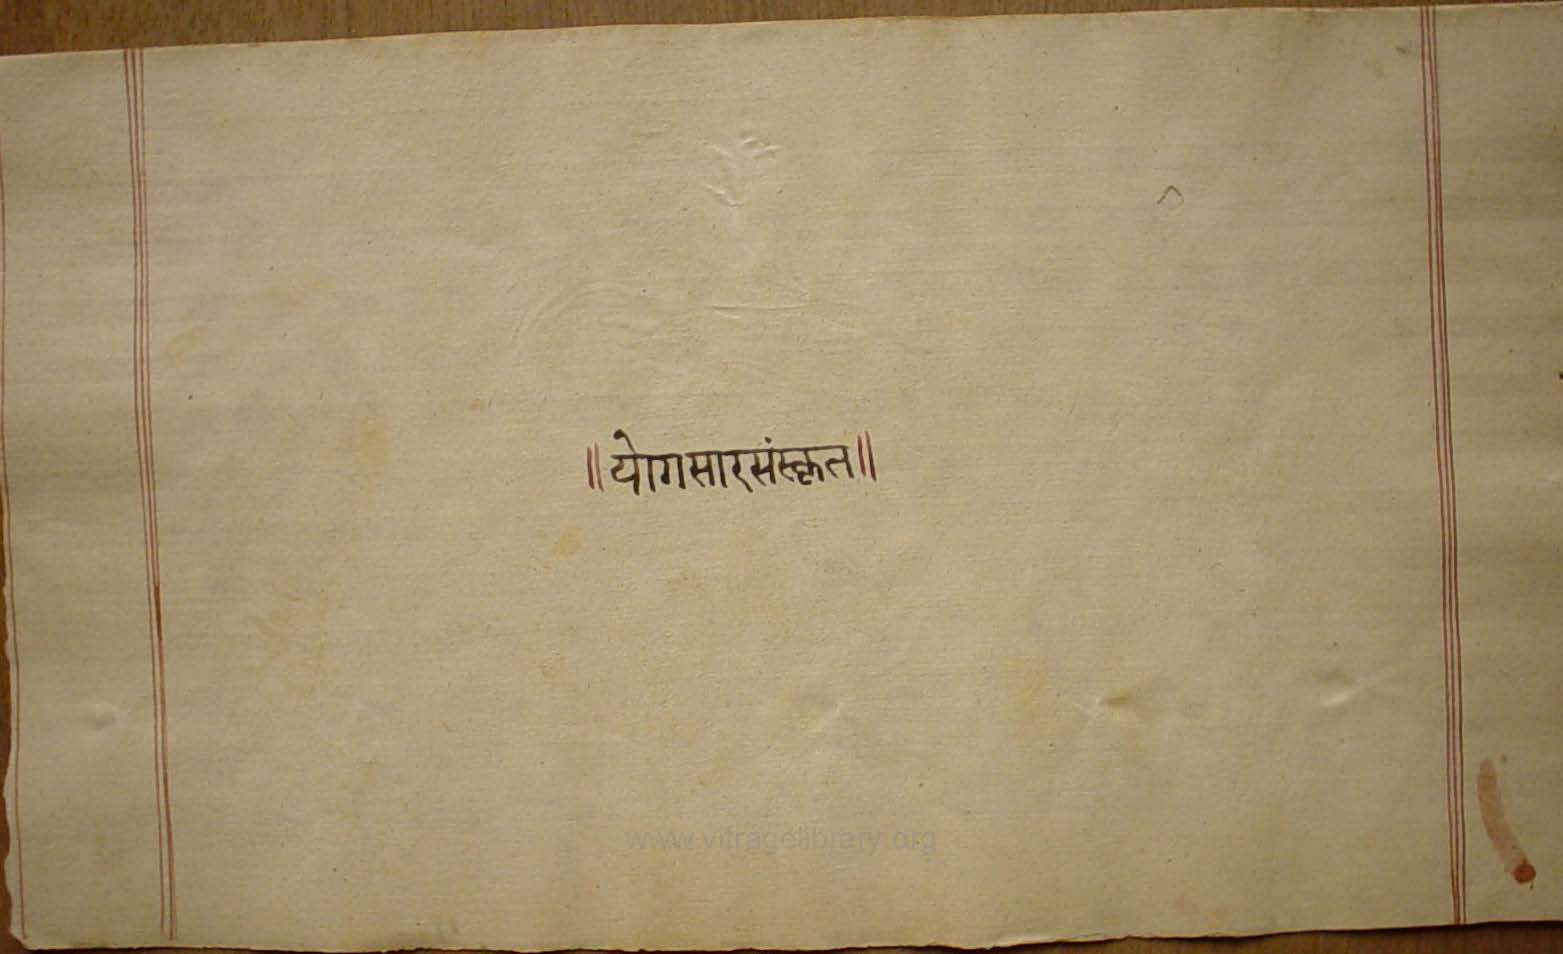 ॥योगसारसंस्कृत॥
www.vitragelibrary.org